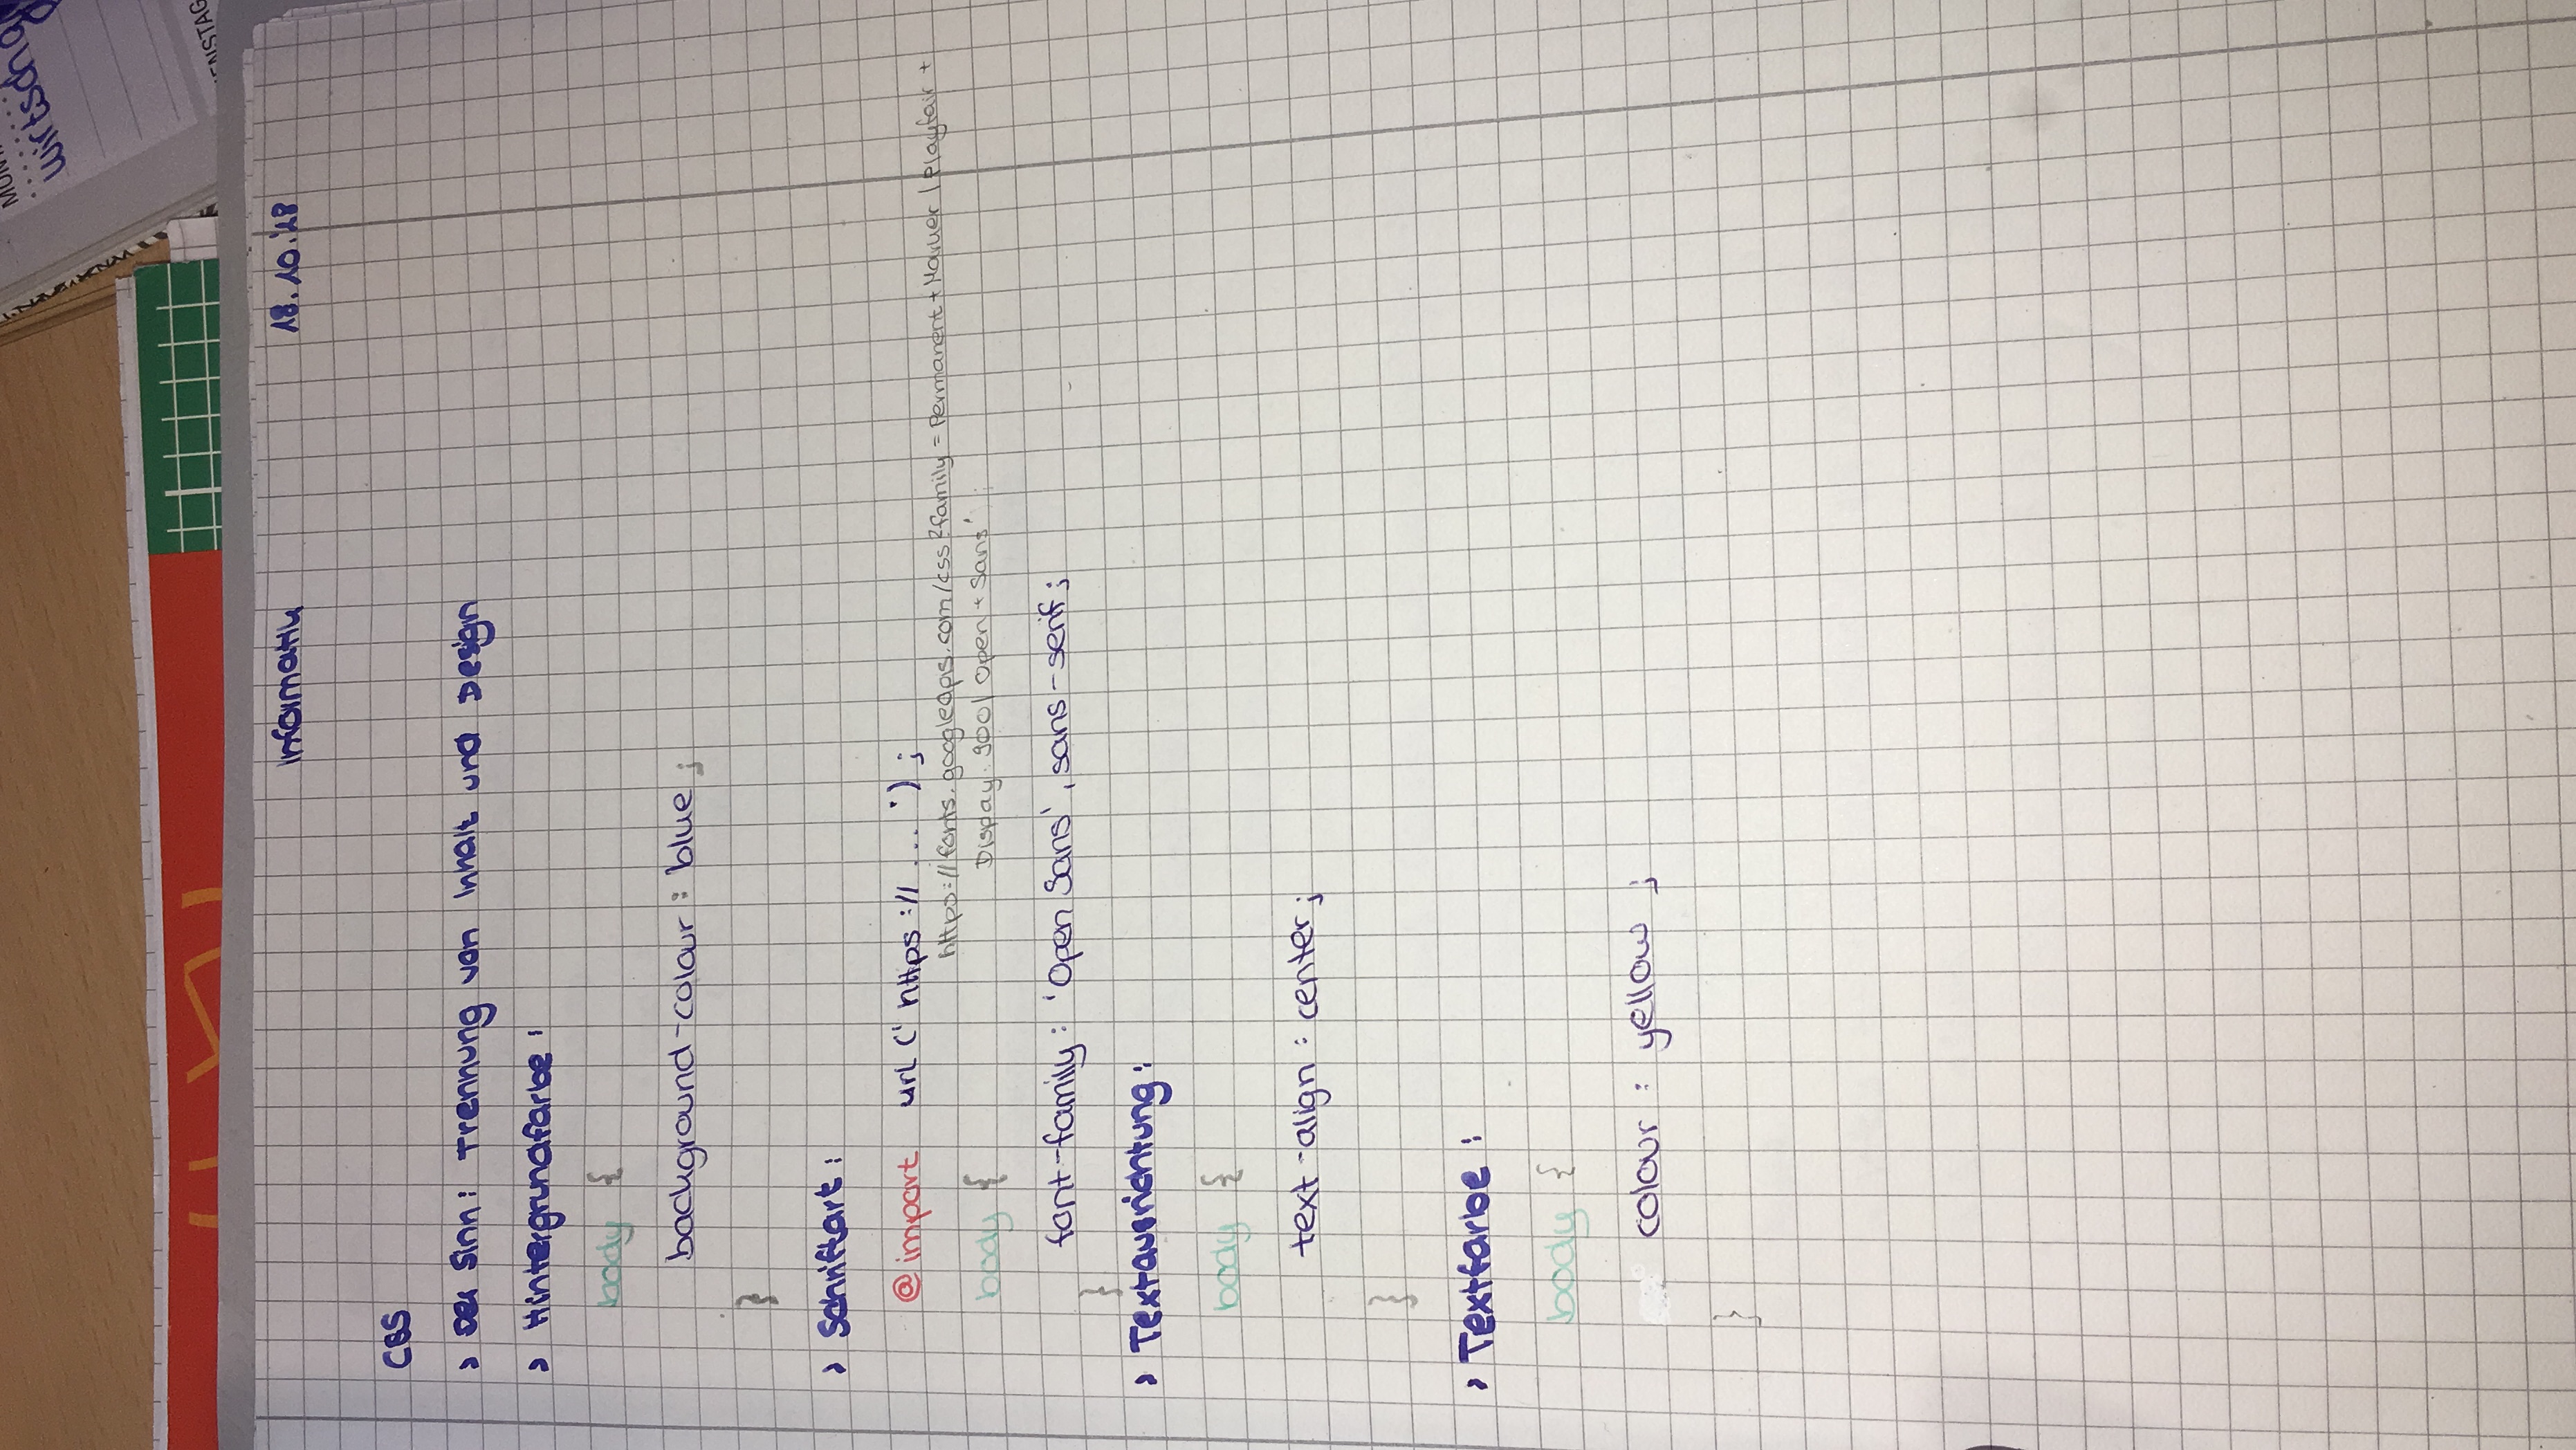 wirtscha
ENSTAG
Informatik 18.10.'18
CSS
> Der Sinn: Trennung von Inhalt und Design
> Hintergrundfarbe:
body {
background-colour: blue;
}
> Schriftart:
@import url ('https://...');
https://fonts.googleapis.com/css?family=Permanent+Marker|Playfair+
body {
Display:900|Open+Sans';
font-family: 'Open Sans', sans-serif;
}
> Textausrichtung:
body {
text-align: center;
}
> Textfarbe:
body {
colour: yellow;
}